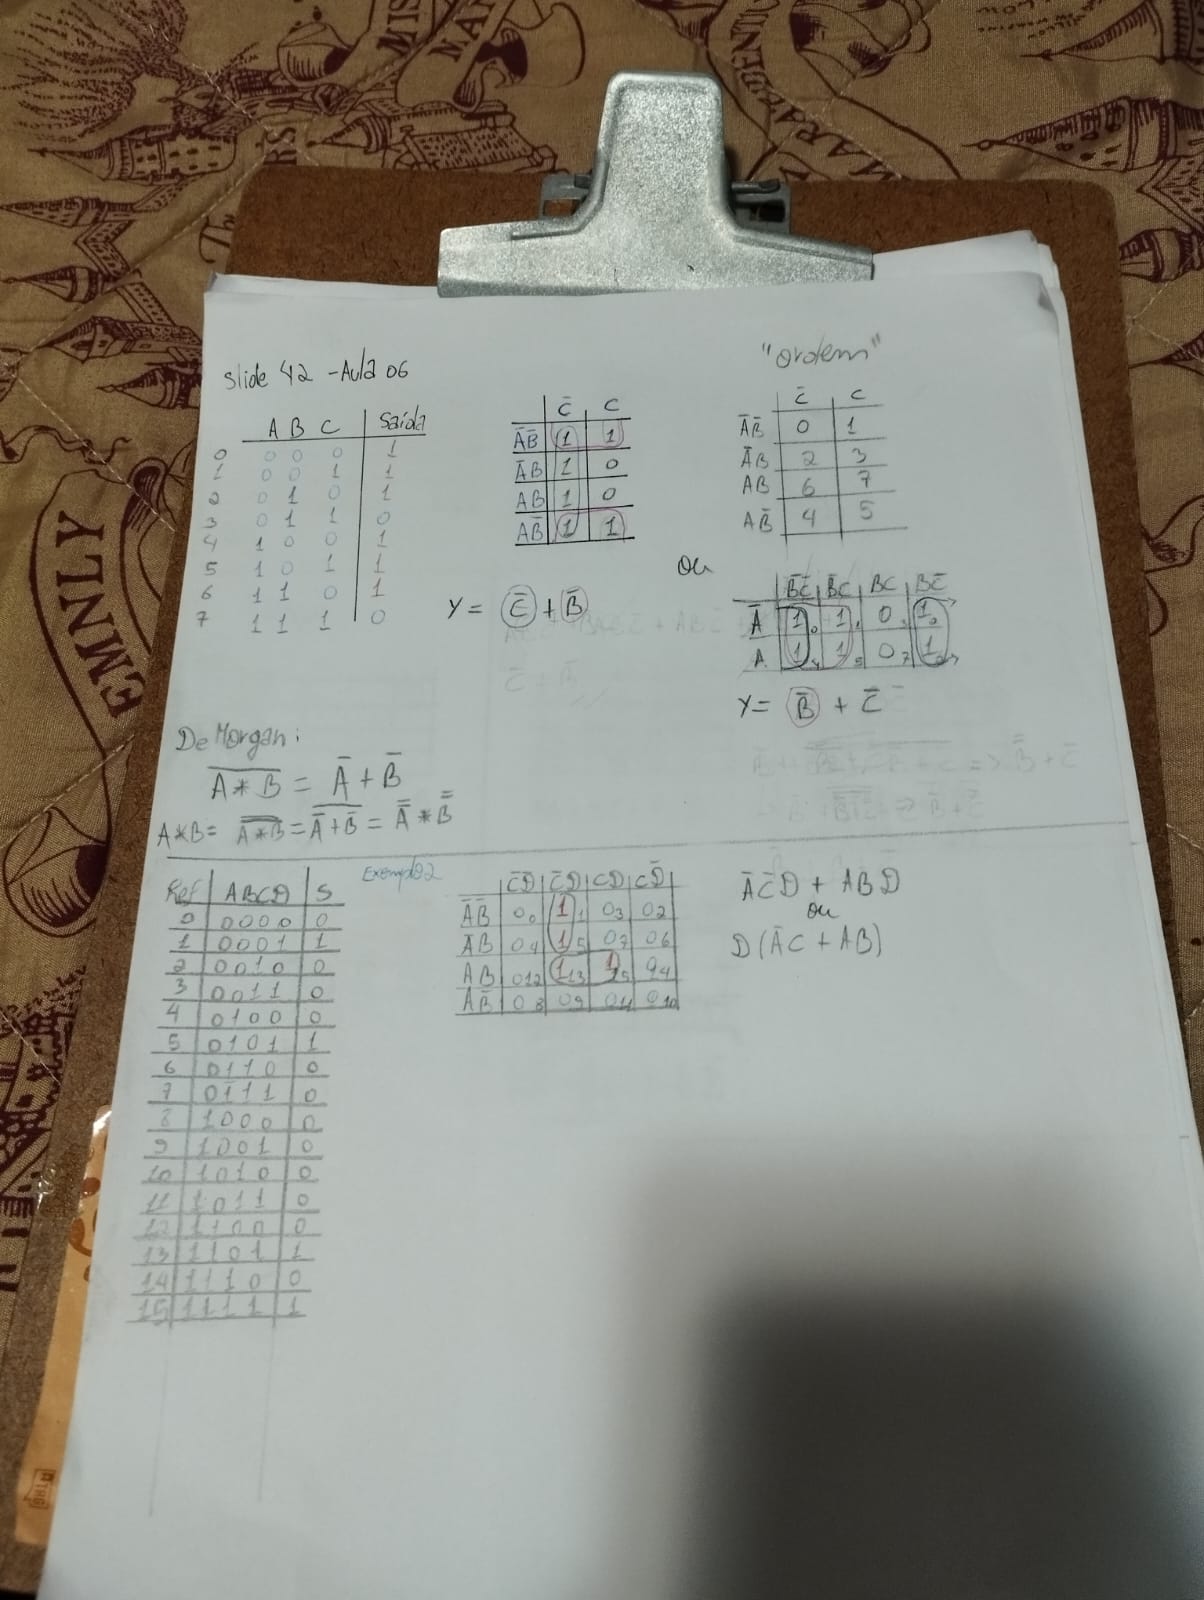 Slide 42 - Aula 06
A B C | Saída
0 0 0 0 | 1
1 0 0 1 | 1
2 0 1 0 | 1
3 0 1 1 | 0
4 1 0 0 | 1
5 1 0 1 | 1
6 1 1 0 | 1
7 1 1 1 | 0
C̅ | C
A̅B̅ | 1 | 1
A̅B | 1 | 0
AB | 1 | 0
AB̅ | 1 | 1
Y = C̅ + B̅
"ordem"
C̅ | C
A̅B̅ | 0 | 1
A̅B | 2 | 3
AB | 6 | 7
AB̅ | 4 | 5
ou
B̅C̅ | B̅C | BC | BC̅
A̅ | 1 0 | 1 1 | 0 3 | 1 2
A | 1 4 | 1 5 | 0 7 | 1 6
Y = B̅ + C̅
De Morgan:
\overline{A * B} = A̅ + B̅
A*B = \overline{\overline{A*B}} = \overline{A̅ + B̅} = \overline{A̅} * \overline{B̅}
Exemplo 2
Ref | ABCD | S
0 | 0000 | 0
1 | 0001 | 1
2 | 0010 | 0
3 | 0011 | 0
4 | 0100 | 0
5 | 0101 | 1
6 | 0110 | 0
7 | 0111 | 0
8 | 1000 | 0
9 | 1001 | 0
10 | 1010 | 0
11 | 1011 | 0
12 | 1100 | 0
13 | 1101 | 1
14 | 1110 | 0
15 | 1111 | 1
C̅D̅ | C̅D | CD | CD̅
A̅B̅ | 0 0 | 1 1 | 0 3 | 0 2
A̅B | 0 4 | 1 5 | 0 7 | 0 6
AB | 0 12 | 1 13 | 1 15 | 0 14
AB̅ | 0 8 | 0 9 | 0 11 | 0 10
A̅C̅D + ABD
ou
D(A̅C + AB)
EMNLY